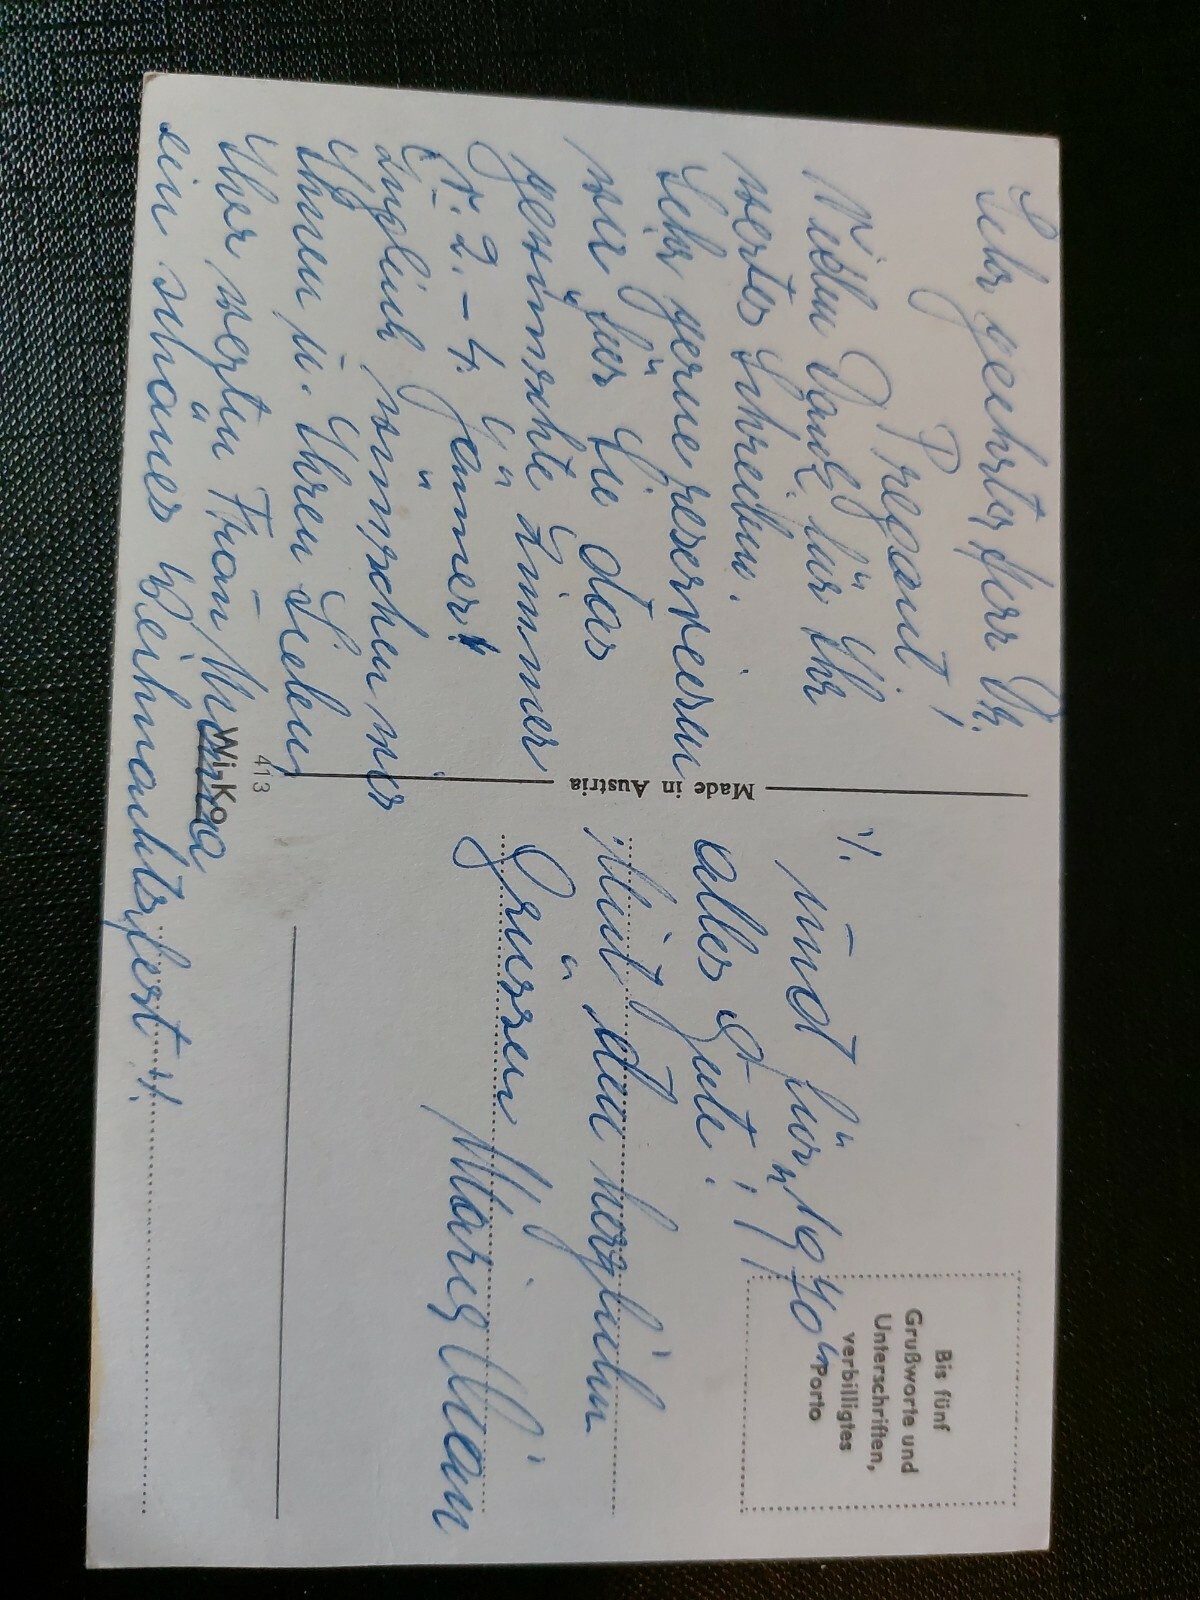 Sehr geehrter Herr Dr.
Pregant!
Vielen Dank für Ihr
wertes Schreiben.
Sehr gerne reservieren
wir für Sie das
gewünschte Zimmer
v. 2. – 4. Jänner!
Zugleich wünschen wir
Ihnen u. Ihren Lieben,
Ihrer werten Frau Mama
ein schönes Weihnachtsfest!
./.
Made in Austria
Wi-Ko
413
Bis fünf
Grußworte und
Unterschriften,
verbilligtes
Porto
und für „1970“
alles Gute!
Mit den herzlichen
Grüssen Maria